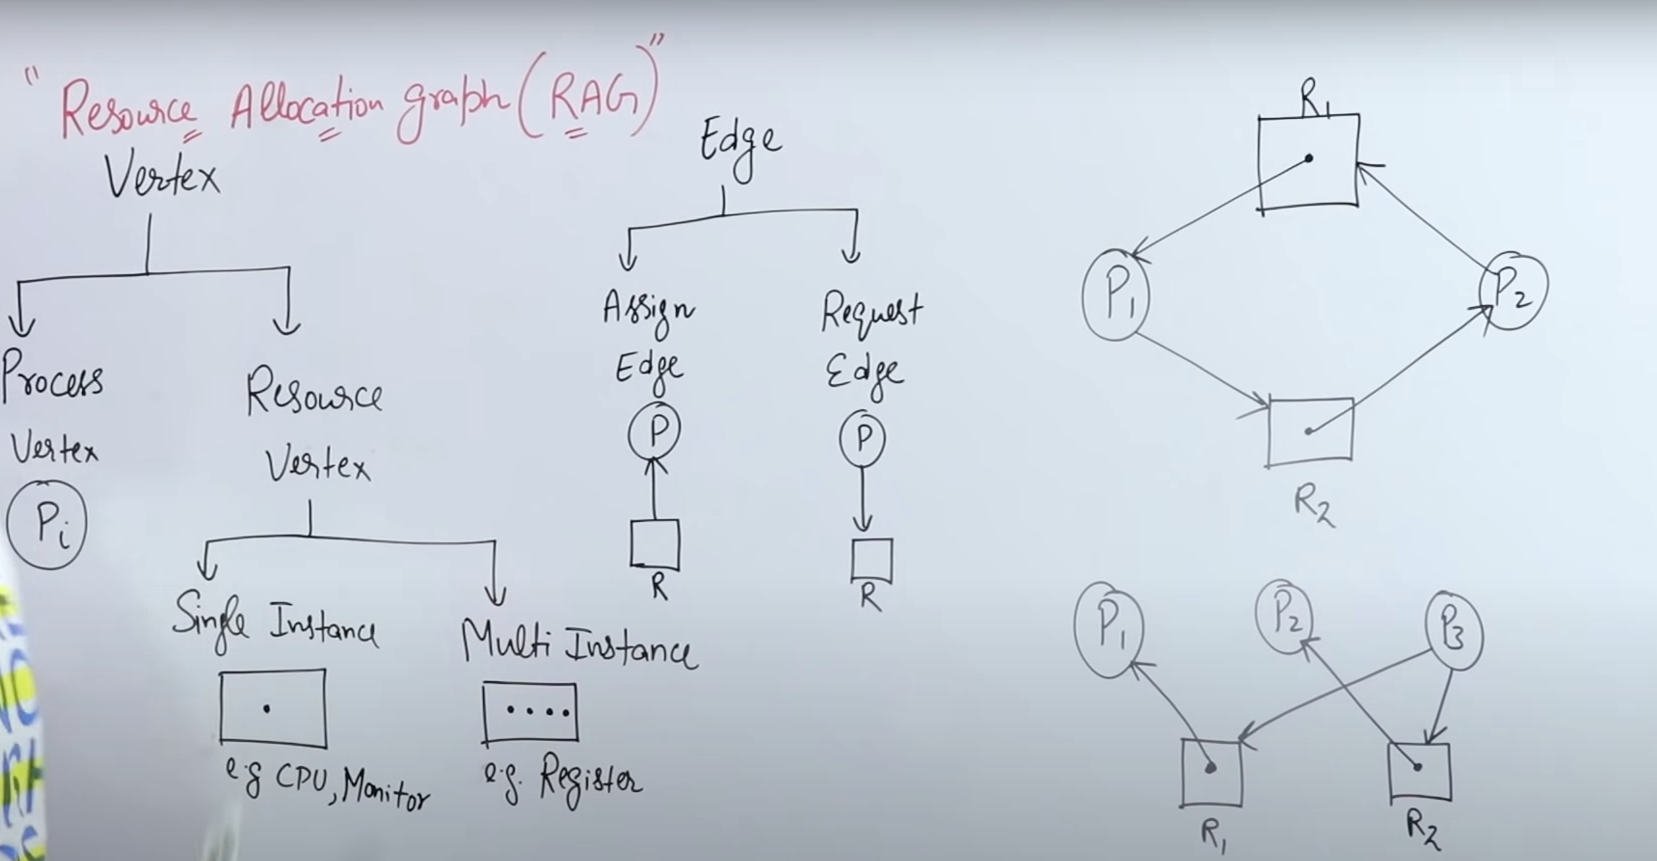 "Resource Allocation graph (RAG)"
Vertex
Process
Vertex
Pi
Resource
Vertex
Single Instance
e.g CPU, Monitor
Multi Instance
e.g. Register
Edge
Assign
Edge
P
R
Request
Edge
P
R
R1
P1
P2
R2
P1
P2
P3
R1
R2